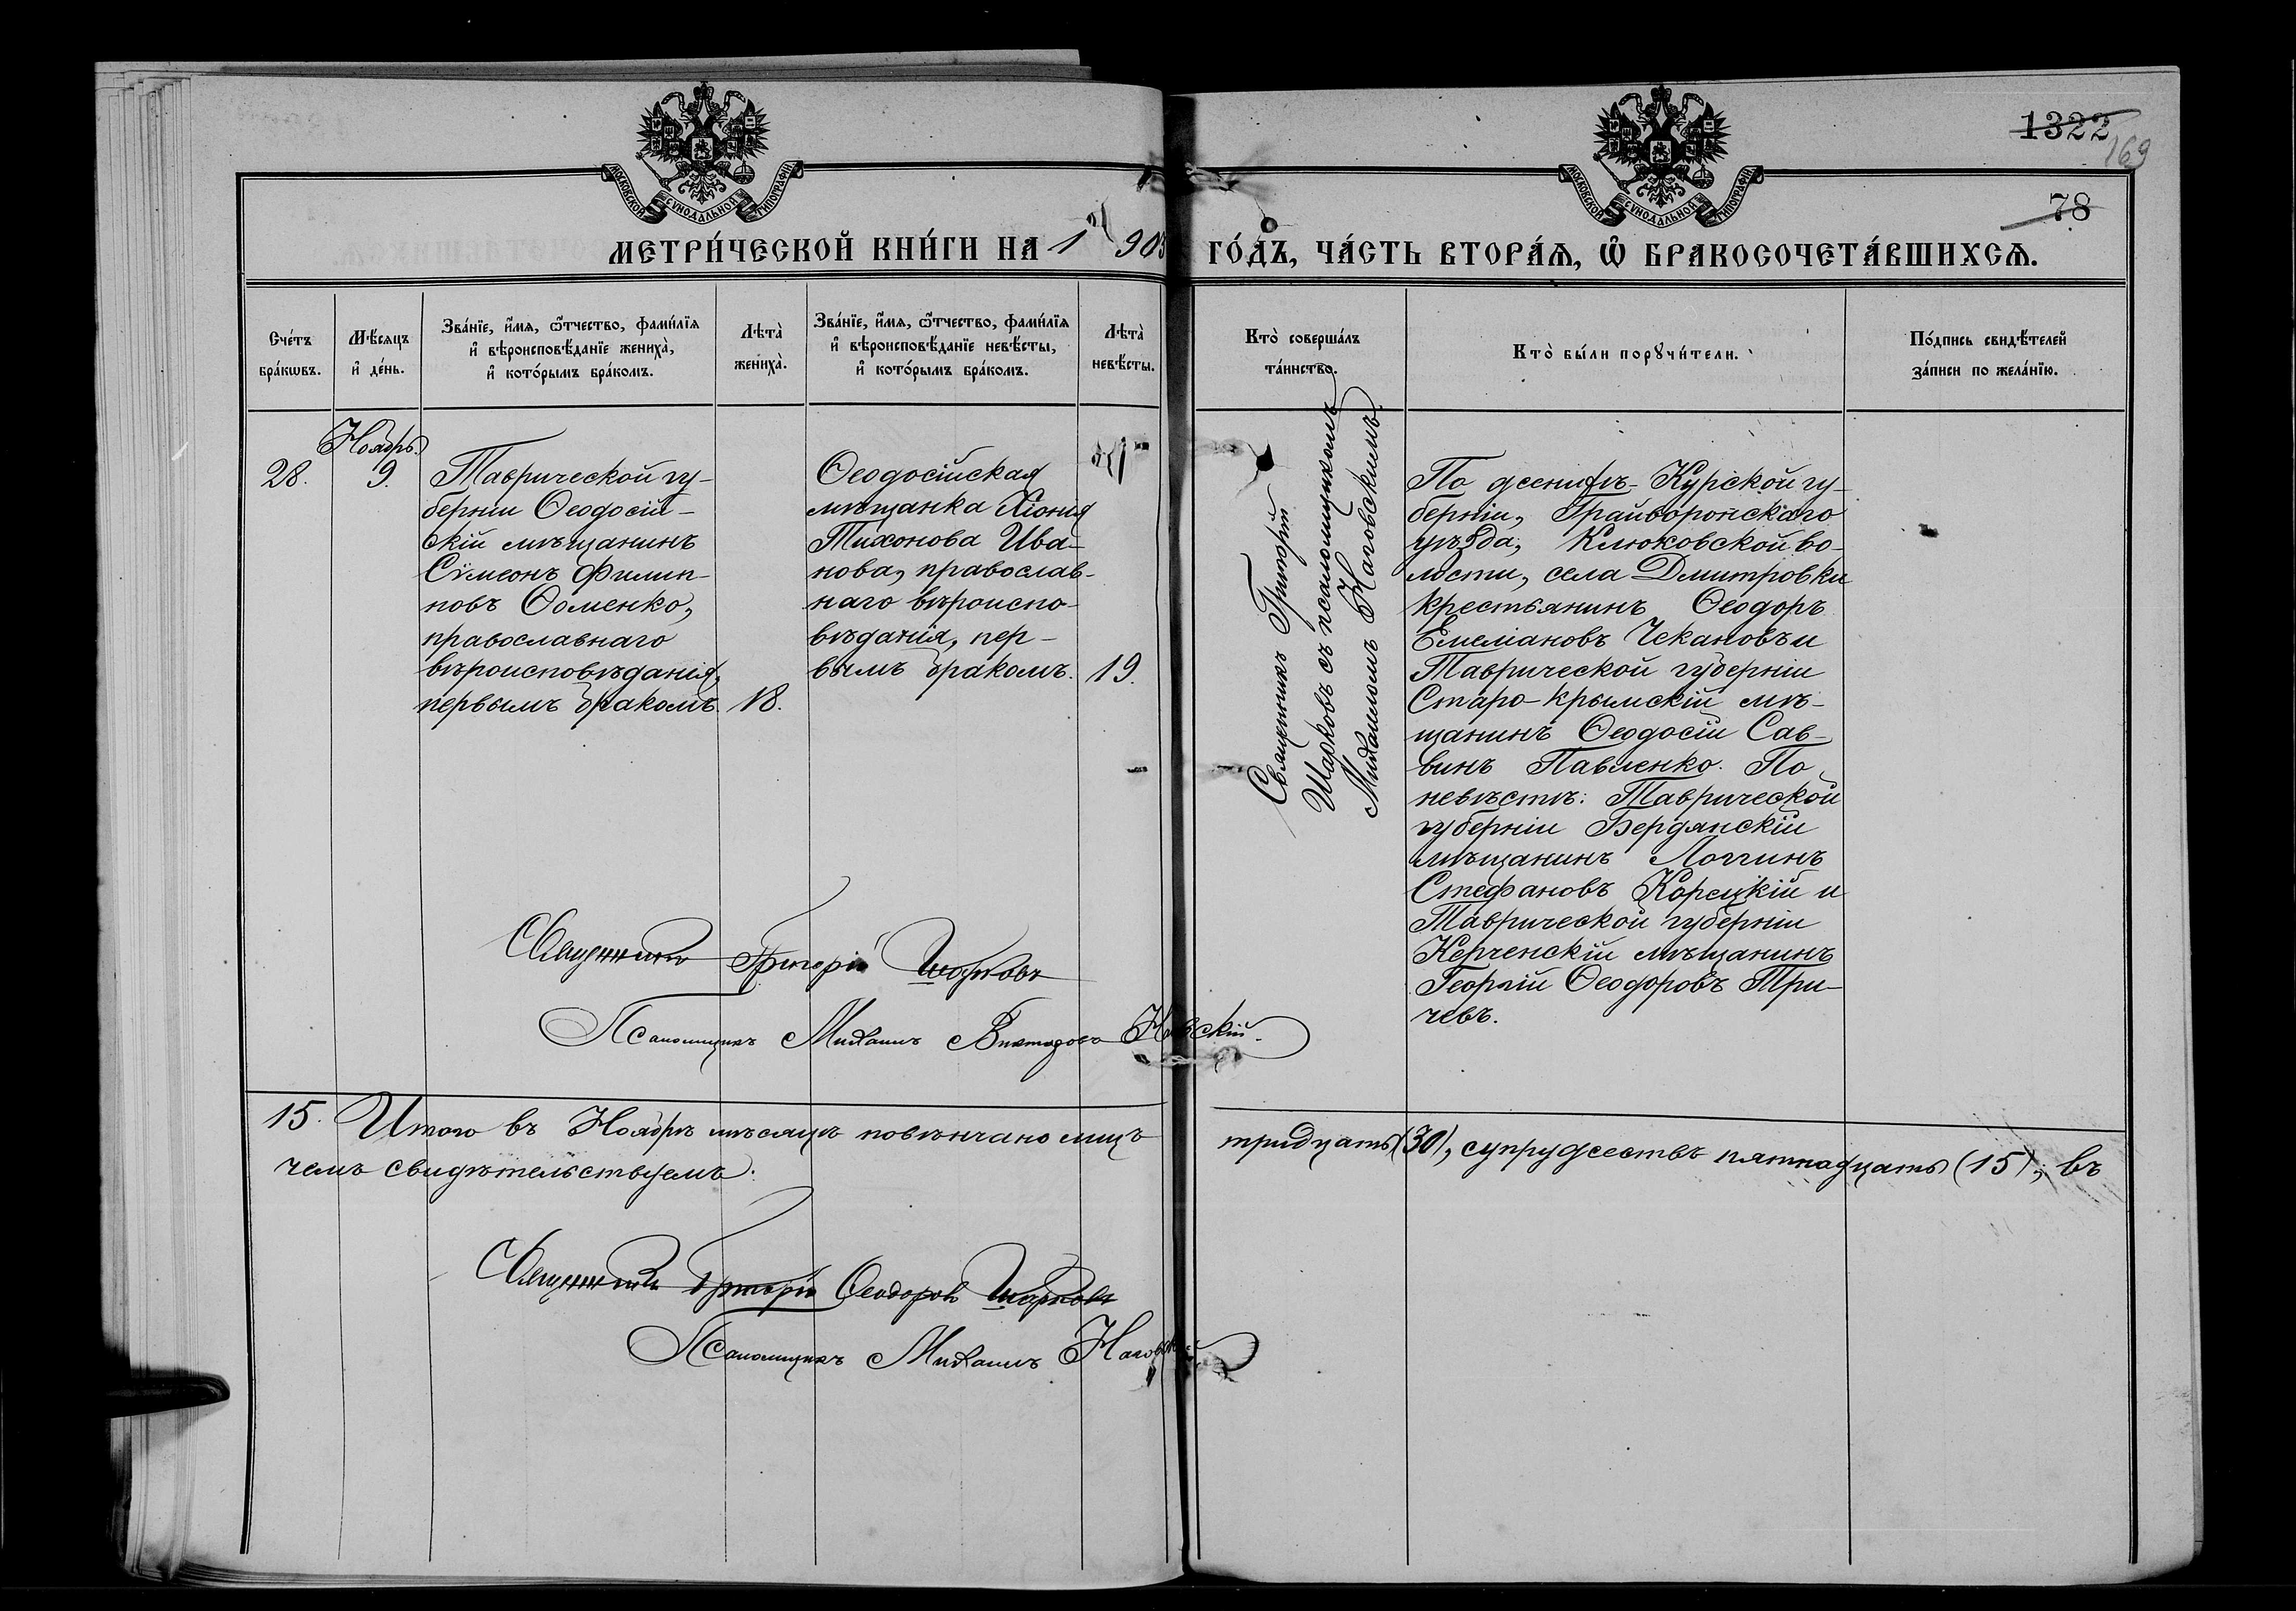 1322
169
78
МОСКОВСКОЙ СѴНОДАЛЬНОЙ ТИПОГРАФІИ
МОСКОВСКОЙ СѴНОДАЛЬНОЙ ТИПОГРАФІИ
МЕТРИ́ЧЕСКОЙ КНИ́ГИ НА 1903 ГО́ДЪ, ЧА́СТЬ ВТОРА́Я, Ѡ҆ БРАКОСОЧЕТА́ВШИХСЯ.
Сче́тъ бра́кѡвъ.
Мѣ́сяцъ и҆ де́нь.
Зва́нїе, и҆́мя, ѻ҆́тчество, фами́лїя и҆ вѣроисповѣ́данїе жениха̀, и҆ кото́рымъ бра́комъ.
Лѣта̀ жениха̀.
Зва́нїе, и҆́мя, ѻ҆́тчество, фами́лїя и҆ вѣроисповѣ́данїе невѣ́сты, и҆ кото́рымъ бра́комъ.
Лѣта̀ невѣ́сты.
Кто̀ соверша́лъ та́инство.
Кто̀ бы́ли порꙋчи́тели.
По́дпись свидѣ́телей за́писи по жела́нїю.
Ноябрь.
28.
9.
Таврической гу-
берніи Ѳеодосій-
скій мѣщанинъ
Сѵмеонъ Филип-
повъ Ѳоменко,
православнаго
вѣроисповѣданія,
первымъ бракомъ.
18.
Ѳеодосійская
мѣщанка Хіонія
Тихонова Ива-
нова, православ-
наго вѣроиспо-
вѣданія, пер-
вымъ бракомъ.
19.
Священникъ Григорій
Шарковъ съ псаломщикомъ
Михаиломъ Наговскимъ.
По женихѣ- Курской гу-
берніи, Грайворонскаго
уѣзда, Клюковской во-
лости, села Дмитровки
крестьянинъ Ѳеодоръ
Емеліановъ Чекановъ и
Таврической губерніи
Старо-Крымскій мѣ-
щанинъ Ѳеодосій Сав-
винъ Павленко. По
невѣстѣ: Таврической
губерніи Бердянскій
мѣщанинъ Логгинъ
Стефановъ Корецкій и
Таврической губерніи
Керченскій мѣщанинъ
Георгій Ѳеодоровъ Три-
чевъ.
Священникъ Григорій Шарковъ
Псаломщикъ Михаилъ Викторовъ
15. Итого въ Ноябрѣ мѣсяцѣ повѣнчано лицъ тридцать (30), супружествъ пятнадцать (15); въ
чемъ свидѣтельствуемъ:
Священникъ Григорій Ѳеодоровъ Шарковъ
Псаломщикъ Михаилъ Наговскій